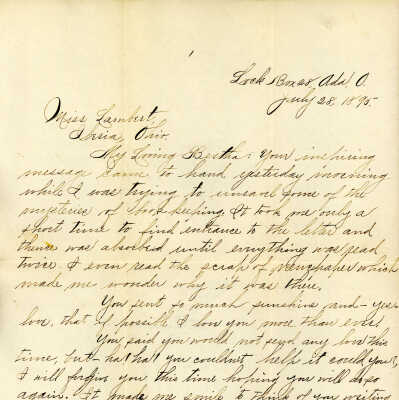 Lock Box 20, Ada, O.
July 28, 1895.
Miss Lambert,
Iberia, Ohio.
My Loving Bertha: Your inspiring
message came to hand yesterday morning
while I was trying to unravel some of the
mysteries of Book-keeping. It took me only a
short time to find entrance to the letter and
thence was absorbed until everything was read
twice. I even read the scrap of newspaper which
made me wonder why it was there.
You sent so much sunshine and - yes -
love, that if possible I love you more than ever.
You said you would not send any love this
time, but ha! ha! you couldn't help it could you?
I will forgive you this time hoping you will do so
again. It made me smile to think of you writing